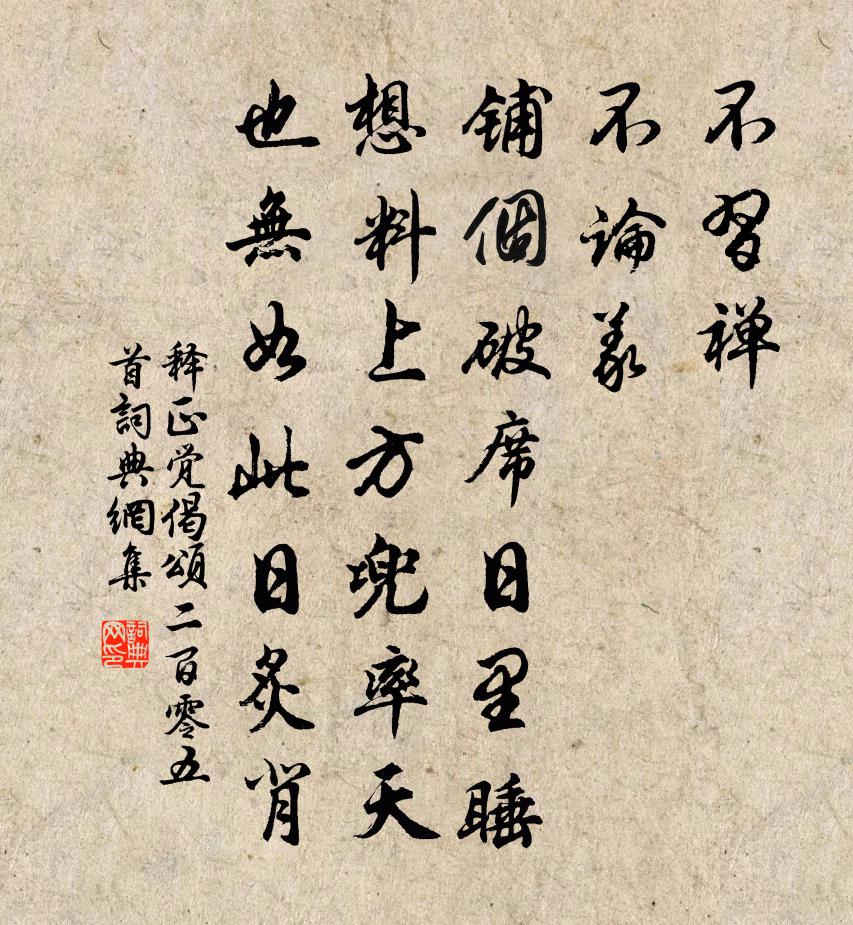 不習禅
不論義
鋪個破席日里睡
想料上方兜率天
也無如此日炙背
释正觉偈頌二百零五
首詞典網集
詞典
网印